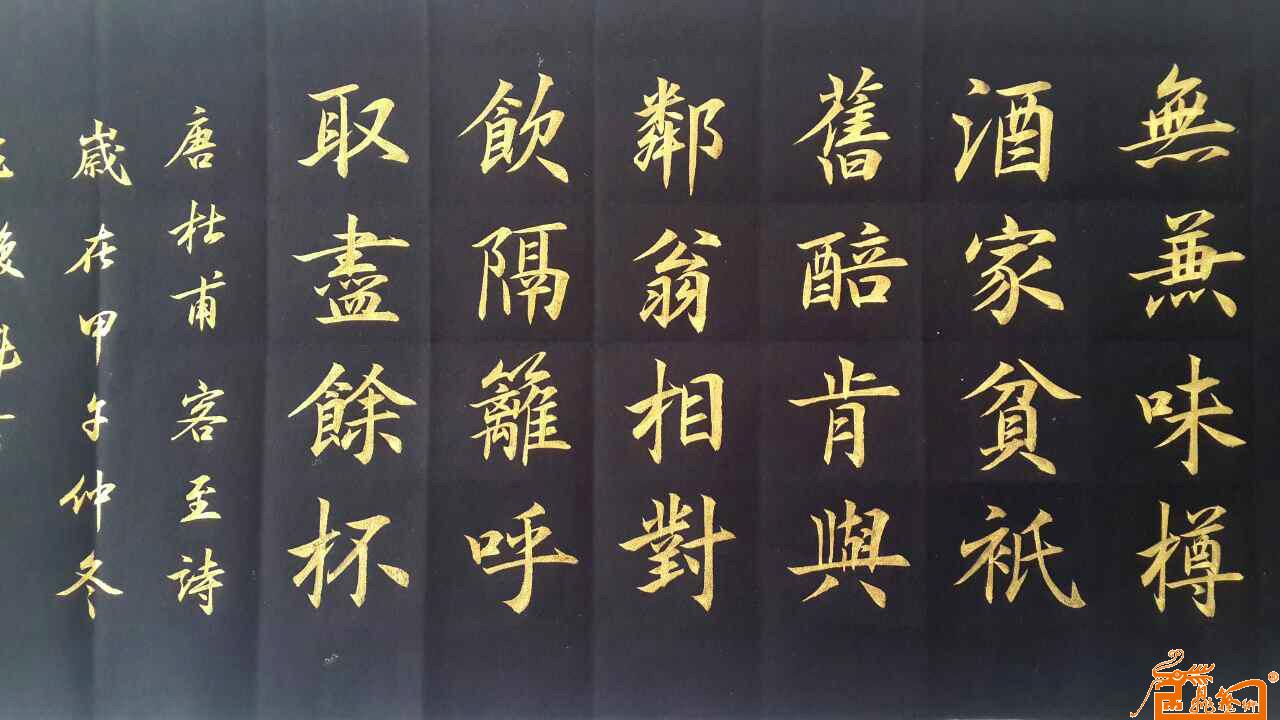 無兼味樽
酒家貧祇
舊醅肯與
鄰翁相對
飲隔籬呼
取盡餘杯
唐杜甫 客至詩
歲在甲午仲冬